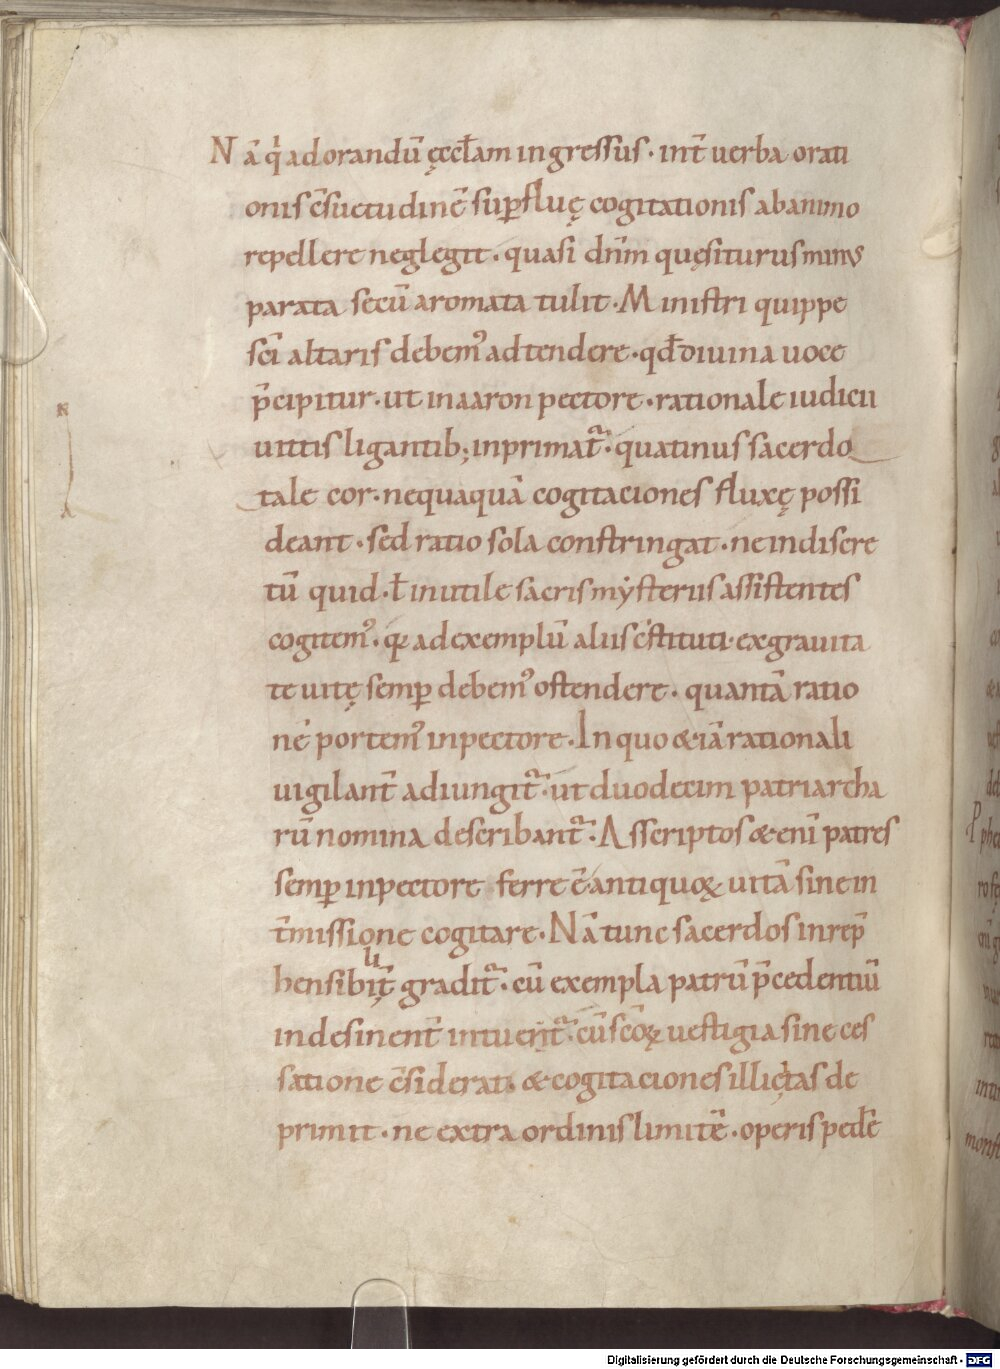 Nā q̇ adorandū ęccl̄am ingressus · int̄ uerba orati
onis c̄suetudinē suꝑfluę cogitationis ab animo
repellere neglegit · quasi dn̄m quęsiturus minus
parata secū aromata tulit · Ministri quippe
sc̄i altaris debem᾿ adtendere · qđ diuina uoce
p̄cipitur · ut in aaron pectore · rationale iudicii
uittis ligantib; inprimat᷑ · quatinus sacerdo
tale cor · nequaquā cogitaciones fluxę possi
deant · sed ratio sola constringat · ne indiscre
tū quid · ł inutile sacris mẏsteriis assistentes
cogitem᾿ · qꝛ ad exemplū aliis c̄stituti · ex grauita
te uitę semꝑ debem᾿ ostendere · quantā ratio
nē portem᾿ in pectore · In quo &iā rationali
uigilant̄ adiungit᷑ · ut duodecim patriarcha
rū nomina describant᷑ · Asscriptos &enī patres
semꝑ in pectore ferre ē · antiquoꝝ uitā sine in
t̄missione cogitare · Nā tunc sacerdos inrep̄
hensibilit̄ gradit᷑ · cū exempla patrū p̄cedentiū
indesinent̄ intuent᷑ · cū sc̄oꝝ uestigia sine ces
satione c̄siderat · & cogitaciones illicitas de
primit · ne extra ordinis limitē · operis pedē
Digitalisierung gefördert durch die Deutsche Forschungsgemeinschaft - DFG